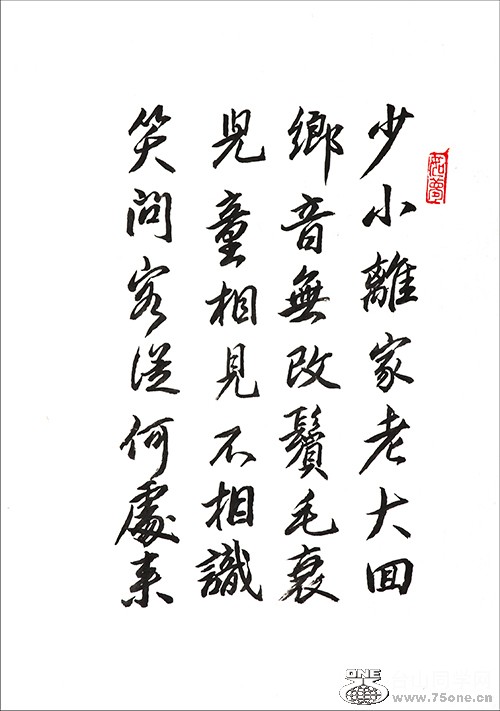 少小離家老大回
鄉音無改鬢毛衰
兒童相見不相識
笑問客從何處來
如夢
ONE
www.75one.com